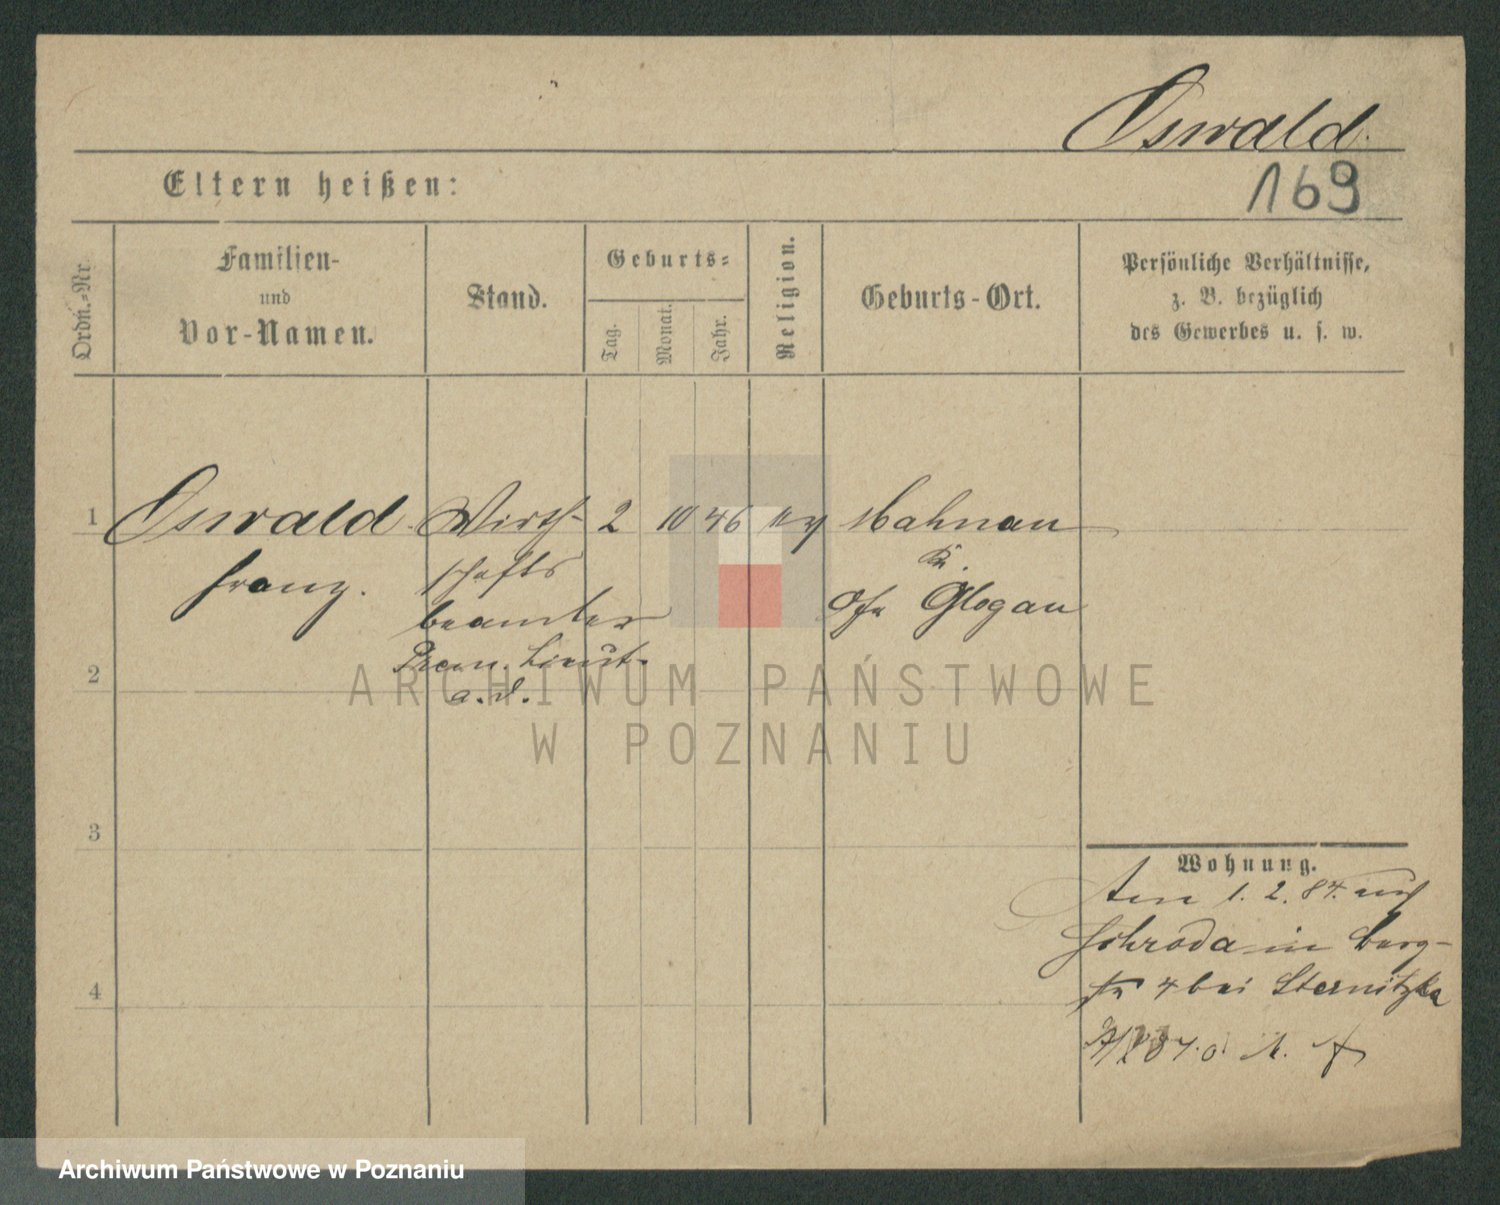 Oswald.
169
Eltern heißen:
Ordn.-Nr.
Familien-
und
Vor-Namen.
Stand.
Geburts-
Tag.
Monat.
Jahr.
Religion.
Geburts-Ort.
Persönliche Verhältnisse,
z. B. bezüglich
des Gewerbes u. s. w.
1 Oswald Wirth- 2 10 46 Mahnau
Franz. schafts Kr.
beamter Glogau
Prem. Lieut.
a. d.
2
3
4
ARCHIWUM PAŃSTWOWE
W POZNANIU
Wohnung.
1. 2. 84.
Schroda in Berg-
str 4 bei Sternitzke
Archiwum Państwowe w Poznaniu